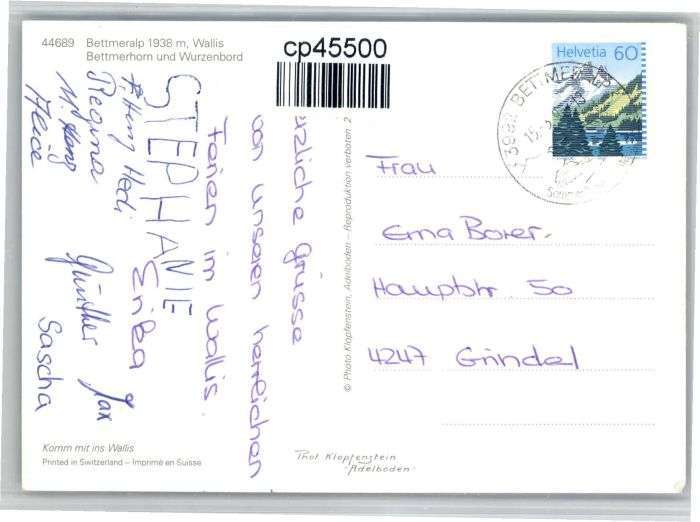 44689 Bettmeralp 1938 m, Wallis
Bettmerhorn und Wurzenbord
cp45500
Helvetia 60
3982 BETTMERALP
rzliche Grüsse
von unseren herrlichen
Ferien im Wallis.
STEPHANIE
Hedi
Erika
Regina
Günther
Jax
Sascha
Frau
Erna Borer-
Hauptstr. 50
4247 Grindel
© Photo Klopfenstein, Adelboden – Reproduktion verboten 2
Komm mit ins Wallis
Printed in Switzerland – Imprimé en Suisse
Phot Klopfenstein
"Adelboden"